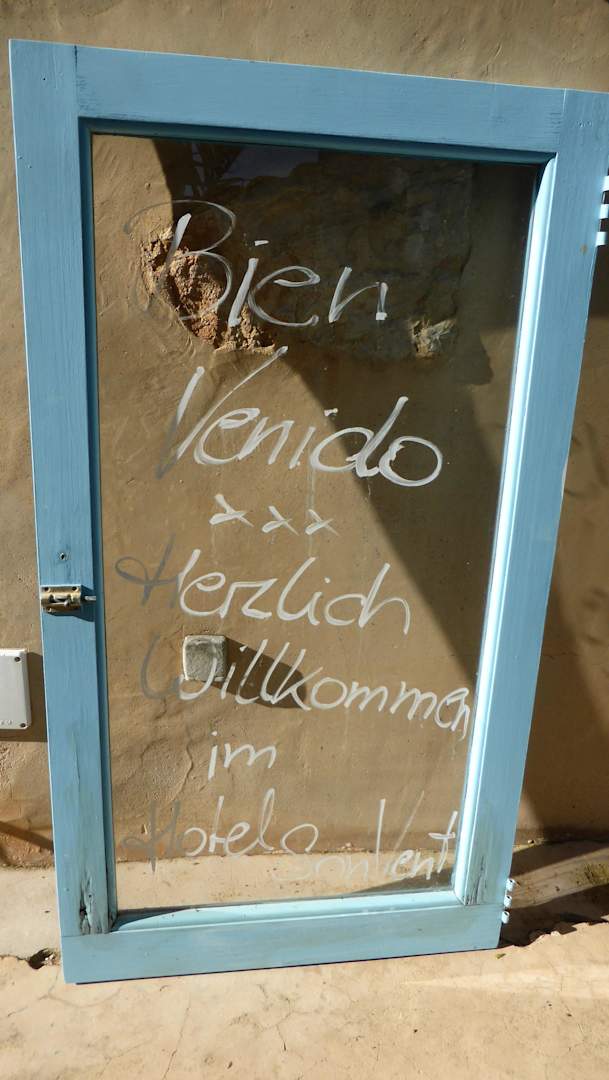 Bien
Venido
xxx
Herzlich
Willkommen
im
Hotel Son Vent